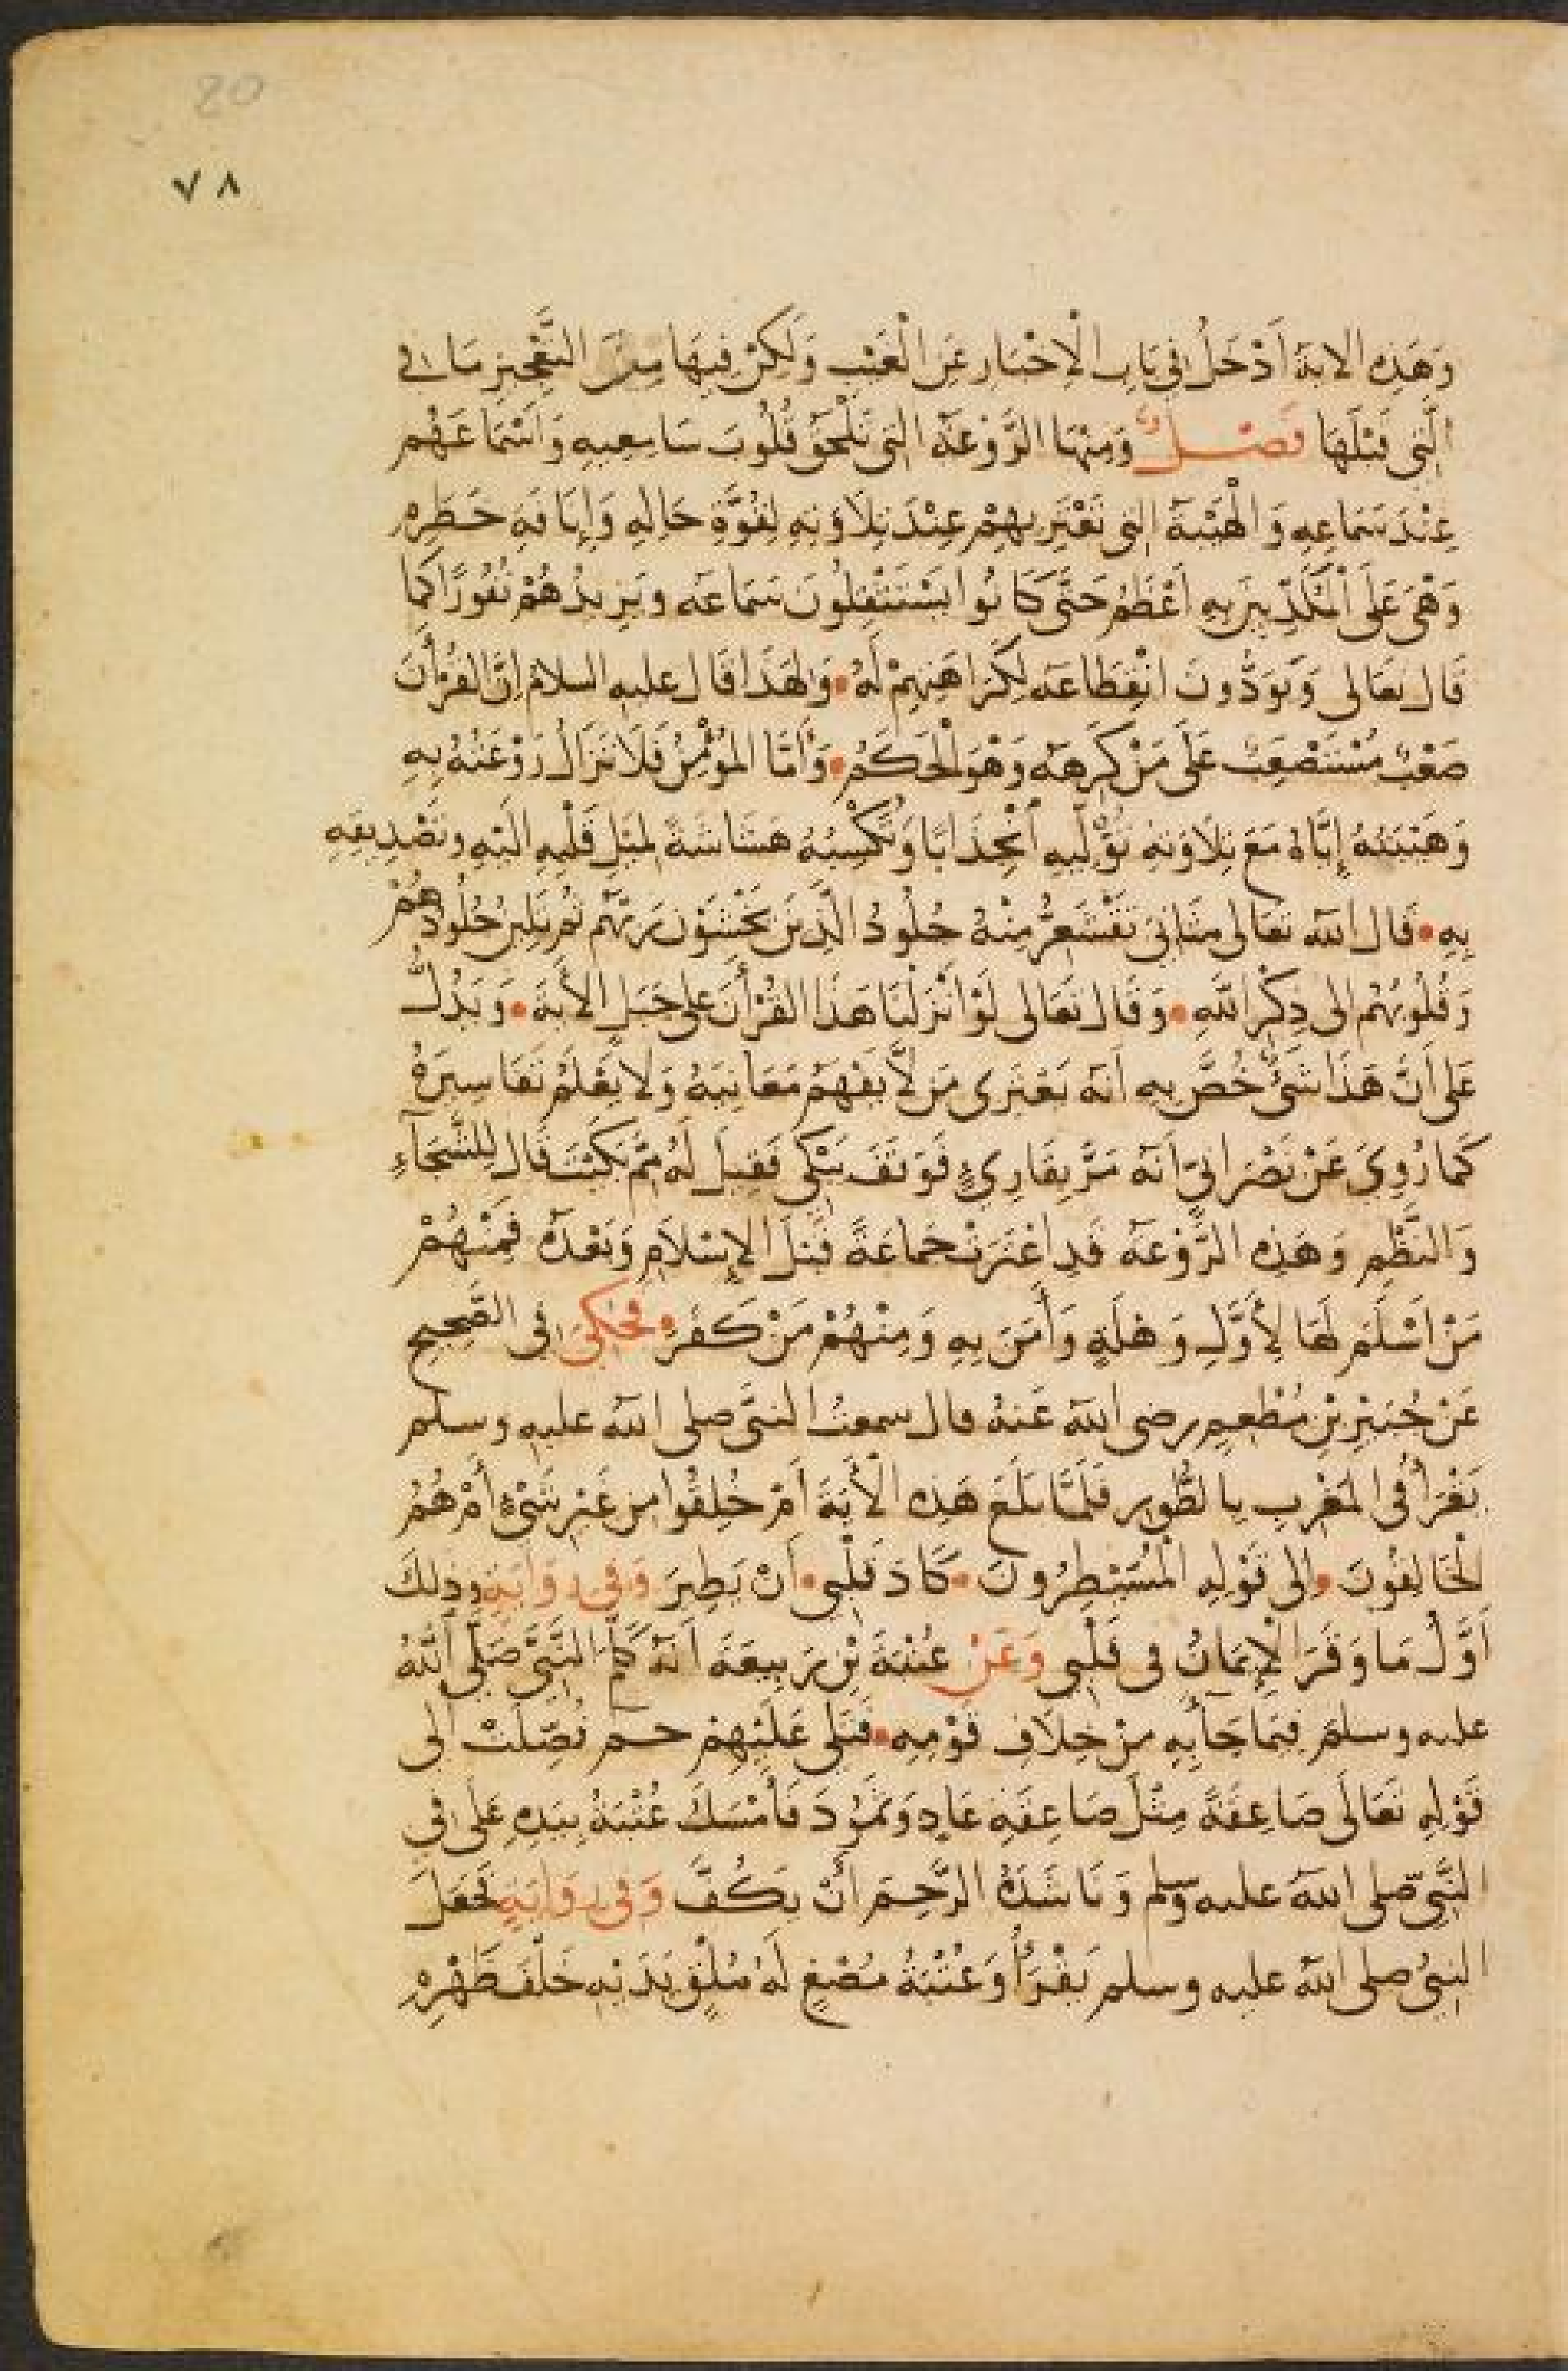 80
٧٨
وَهَذِهِ الاية أَدْخَلُ فِي بَابِ الْإِخْبَارِ عَنِ الْغَيْبِ وَلَكِنْ فِيهَا مِنَ التَّعْجِيزِ مَا فِي
الَّتِي قَبْلَهَا فَصْلٌ وَمِنْهَا الرَّوْعَة التي تَلْحَقُ قُلُوبَ سَامِعِيهِ وَأَسْمَاعَهُم
عِنْدَ سَمَاعِهِ وَالْهَيْبَة التي تَعْتَرِيهِمْ عِنْدَ تِلَاوَتِهِ لِقُوَّةِ حَالِهِ وَإِنَافَةِ خَطَرِهِ
وَهْيَ عَلَى الْمُكَذِّبِينَ بِهِ أَعْظَمُ حَتَّى كَانُوا يَسْتَثْقِلُونَ سَمَاعَه ويَزِيدُهُمْ نُفُورًا كما
قَالَ تَعَالى وَيَوَدُّونَ انْقِطَاعَه لِكَرَاهَتِهِمْ لَهُ • وَلِهَذَا قَالَ عليه السلام إِنَّ القُرْأَنَ
صَعْبٌ مُسْتَصْعَبٌ عَلَى مَنْ كَرِهَه وَهْوَ الْحَكَمُ • وَأَمَّا المُؤْمِنُ فَلَا تَزَالُ رَوْعَتُهُ بِهِ
وَهَيْبَتُهُ إِيَّاهُ مَعَ تِلَاوَتِهِ تُوْلِيهِ انْجِذَابًا وَتُكْسِبُهُ هَشَاشَةً لِمَيْلِ قَلْبِهِ الَيْهِ وتَصْدِيقِهِ
بِهِ • قَالَ الله تعَالى مَثَانِيَ تَقْشَعِرُّ مِنْهُ جُلُودُ الَّذِينَ يَخْشَوْنَ رَبَّهُم ثم تَلِينُ جُلُودُهُمْ
وَقُلُوبُهُم الى ذِكْرِ اللهِ • وَقَالَ تَعَالى لَوْ انْزَلْنَا هَذَا القُرْأَنَ على جَبَلٍ الأَيَةَ • وَيَدُلُّ
عَلى أَنَّ هَذَا شَىْءٌ خُصَّ بِهِ أَنَّه يَعْتَرِى مَن لَّا يَفْهَمُ مَعَانِيَهُ وَلا يَعْلَمُ تَفَاسِيرَهُ
كَمَا رُوِيَ عَنْ نَصْرَانِيّ أَنَّه مَرَّ بِقَارِيءٍ فَوَقَفَ يَبْكِي فَقِيلَ لَهُ مِمَّ بَكَيْتَ قَالَ لِلشَّجَآءِ
وَالنَّظْمِ وَهَذِه الرَّوْعَة قَدِ اعْتَرَتْ جَمَاعَةً قَبْلَ الإِسْلَامِ وَبَعْدَهُ فَمِنْهُمْ
مَنْ اَسْلَمَ لَهَا لِأَوَّلِ وَهْلَةٍ وَأَمَنَ بِهِ وَمِنْهُمْ مَنْ كَفَرَ • فَحُكِيَ فِى الصَّحِيحِ
عَنْ جُبَيْرِ بْنِ مُطْعِمٍ رضى الله عَنْهُ قال سمعتُ النبىَّ صلى الله عليه وسلم
يَقْرَأُ فِى المَغْرِبِ بِالطُّورِ فَلَمَّا بَلَغَ هَذِه الْأَيَةَ أَمْ خُلِقُوا مِن غَيْرِ شَيْءٍ أَمْ هُمُ
الْخَالِقُونَ • إلى قَوْلِهِ الْمُسَيْطِرُونَ • كَادَ قَلْبِي • أَنْ يَطِيرَ وَفِى رِوَايَةٍ وذلِكَ
أَوَّلُ مَا وَقَرَ الْإِيمَانُ فى قَلْبِي وَعَنْ عُتْبَةَ بْنِ رَبِيعَةَ أَنَّهُ كَلَّمَ النَّبِيَّ صَلَّى اللَّهُ
عليه وسلم فِيمَا جَاءَ بِهِ مِنْ خِلَافِ قَوْمِهِ • فَتَلى عَلَيْهِمْ حم فُصِّلَتْ الى
قَوْلِهِ تَعَالَى صَاعِقَةً مِثْلَ صَاعِقَةِ عَادٍ وَثَمُودَ فَأَمْسَكَ عُتْبَةُ بِيَدِهِ عَلَى فِي
النَّبِيِّ صلى الله عليه وسلم وَنَاشَدَهُ الرَّحِمَ أَنْ يَكُفَّ وَفِى رِوَايَةٍ فَجَعَلَ
النبيُّ صلى الله عليه وسلم يَقْرَأُ وَعُتْبَةُ مُصْغٍ لَهُ مُلْقٍ يَدَيْهِ خَلْفَ ظَهْرِهِ